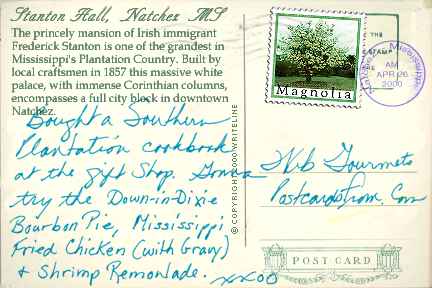 Stanton Hall, Natchez MS
The princely mansion of Irish immigrant
Frederick Stanton is one of the grandest in
Mississippi's Plantation Country. Built by
local craftsmen in 1857 this massive white
palace, with immense Corinthian columns,
encompasses a full city block in downtown
Natchez.
Bought a Southern
Plantation cookbook
at the gift Shop. Gonna
try the Down-in-Dixie
Bourbon Pie, Mississippi
Fried Chicken (with Gravy)
& Shrimp Remonlade.
xxoo
© COPYRIGHT 2000 WRITELINE
Magnolia
THE
STAMP
Natchez Mississippi
AM
APR 26
2000
Nib Gourmets
Postcardsfrom.Com
POST CARD